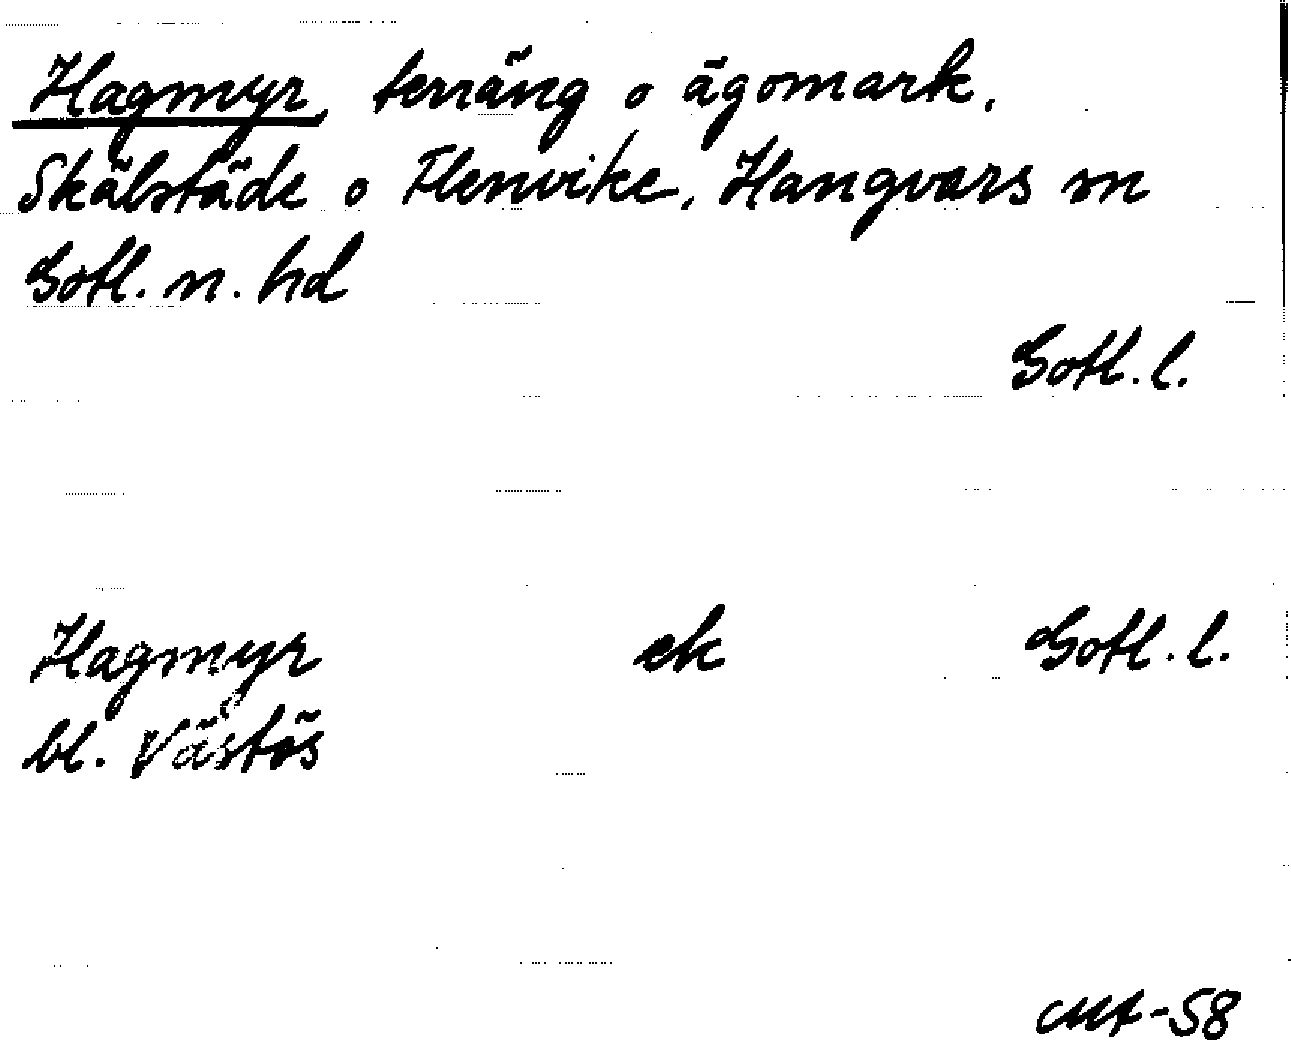 Hagmyr, terräng o ägomark.
Skälstäde o Flenvike, Hangvars sn
Gotl. n. hd
Gotl. l.
Hagmyr ek Gotl. l.
bl. Västös
-58